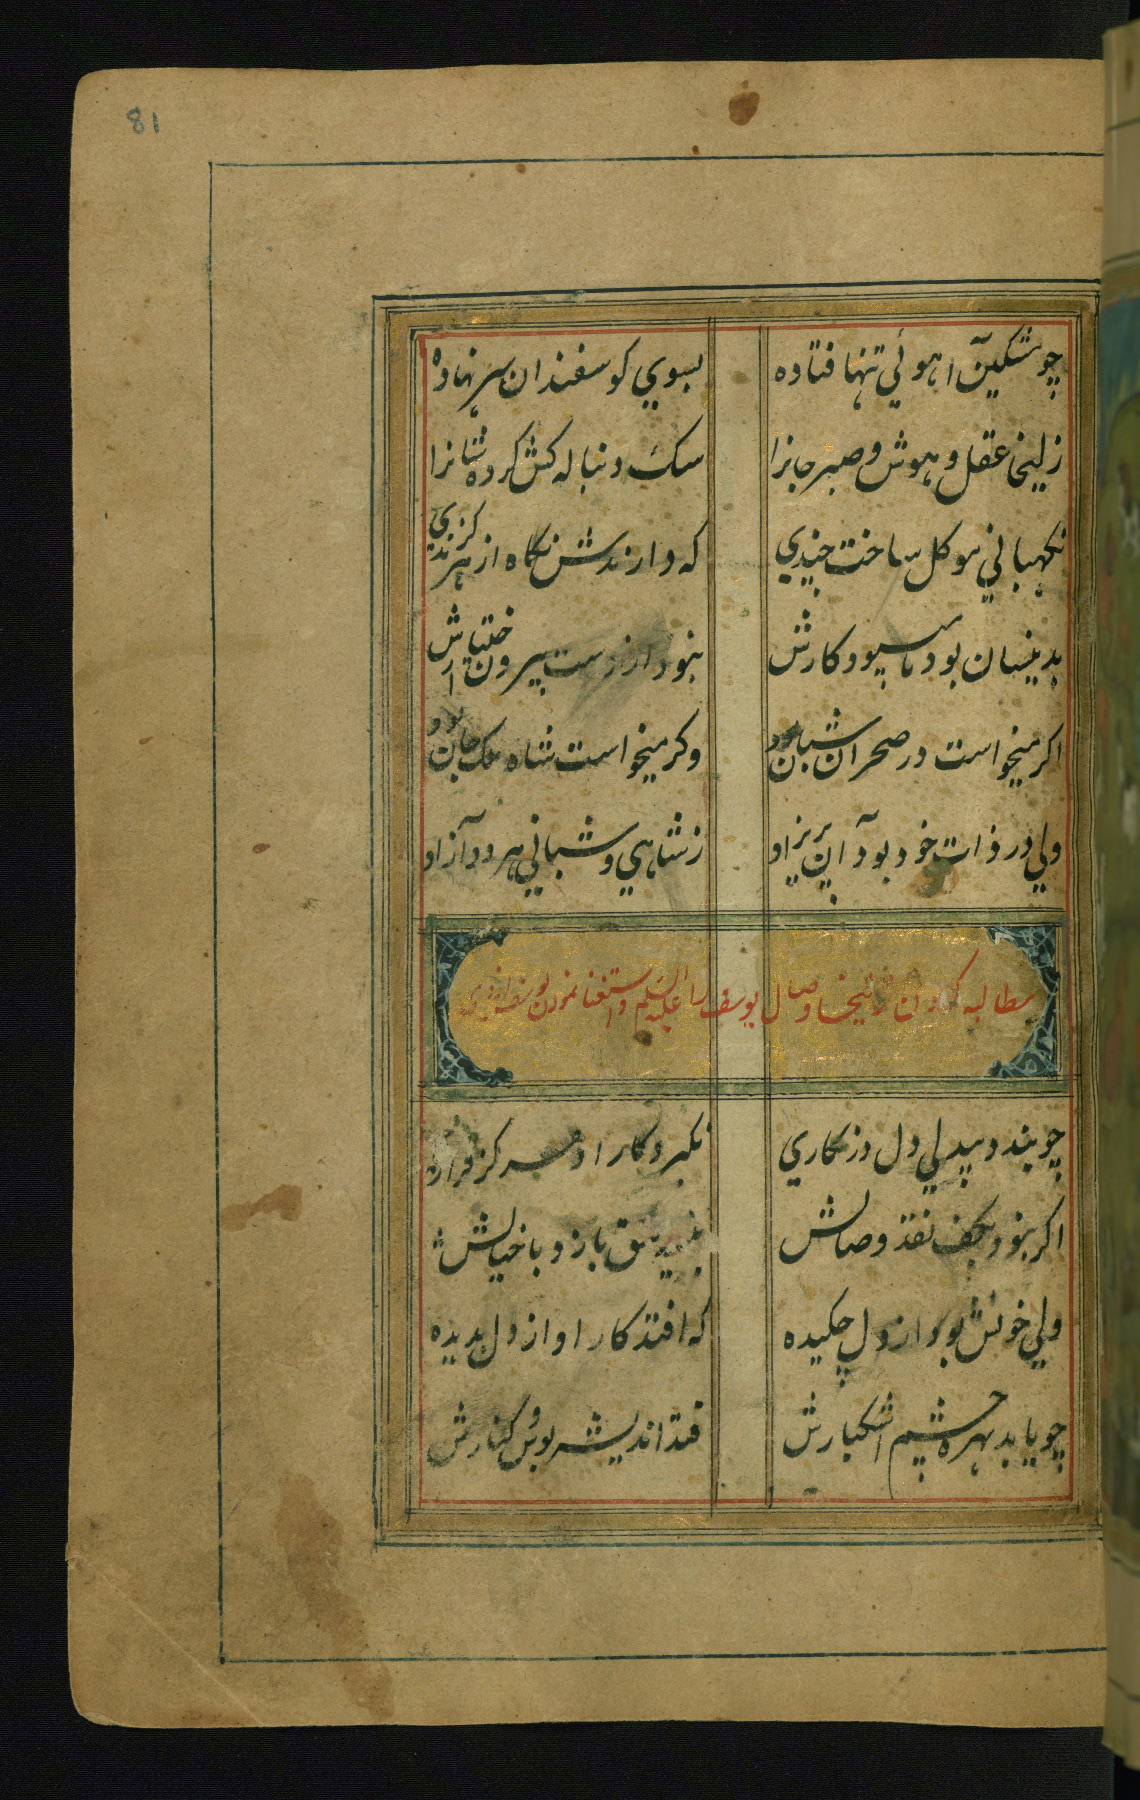 81
چو مشکین آهوئی تنها فتاده بسوی کوسفندان سر نهاده
زلیخا عقل و هوش و صبر جانرا سک دنباله کش کرده شبانرا
نکهبانی موکل ساخت چندی که دارندش نکاه از هر کزندی
بدینسان بود تا میبود کارش نبود از دست بیرون اختیارش
اکر میخواست در صحرا شبان بود وکر میخواست شاه ملک جان بود
ولی در ذات خود بود آن پریزاد ز شاهی و شبانی هر دو آزاد
مطالبه کردن زلیخا وصال یوسف را علیه السلم و استغنا نمودن یوسف از وی
چو بندد بیدلی دل در نکاری نکیرد کار او هرکز قراری
اکر نبود بکف نقد وصالش بنسیه عشق بازد با خیالش
ولی خونش بود از دل چکیده که افتد کار او از دل بدیده
چو یابد بهره چشم اشکبارش فتد اندیشه بوس و کنارش